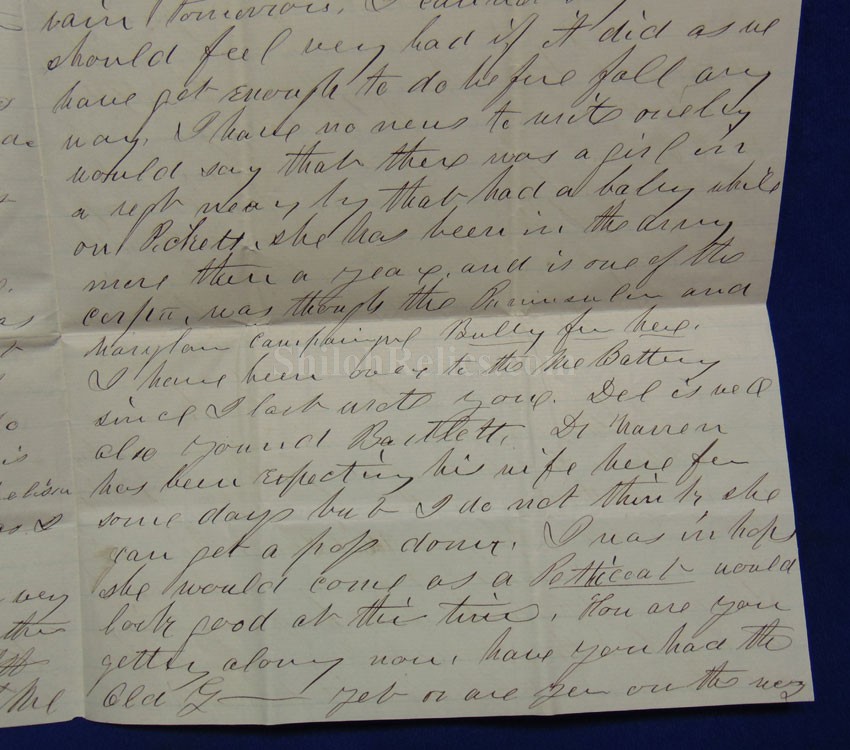 rain tomorrow. I cannot
should feel very bad if it did as we
have got enough to do before fall any
way. I have no news to write only
would say that there was a girl in
a regt near by that had a baby while
on Pickett, she has been in the army
more then a year, and is one of the
corpr, was though the Peninsular and
Marylan campaingne Bully for her.
I have been over to the Me Battery
since I last wrote you. Del is well
also young Bartlett. Dr Warren
has been expecting his wife here for
some days but I do not think she
can get a pass down. I was in hops
she would come as a Petticoat would
look good at this time. How are you
getting along now, have you had the
Old G— yet or are you on the way
ShilohRelics.com
elison
as I
very
the
Me
is
as